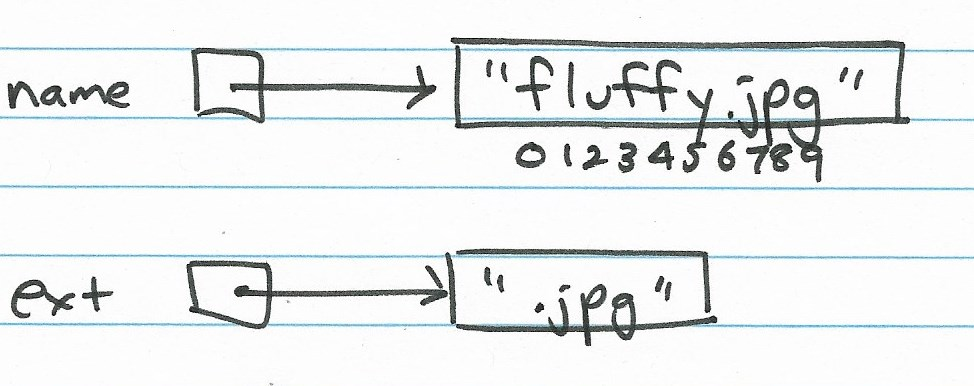 name "fluffy.jpg"
0123456789
ext ".jpg"